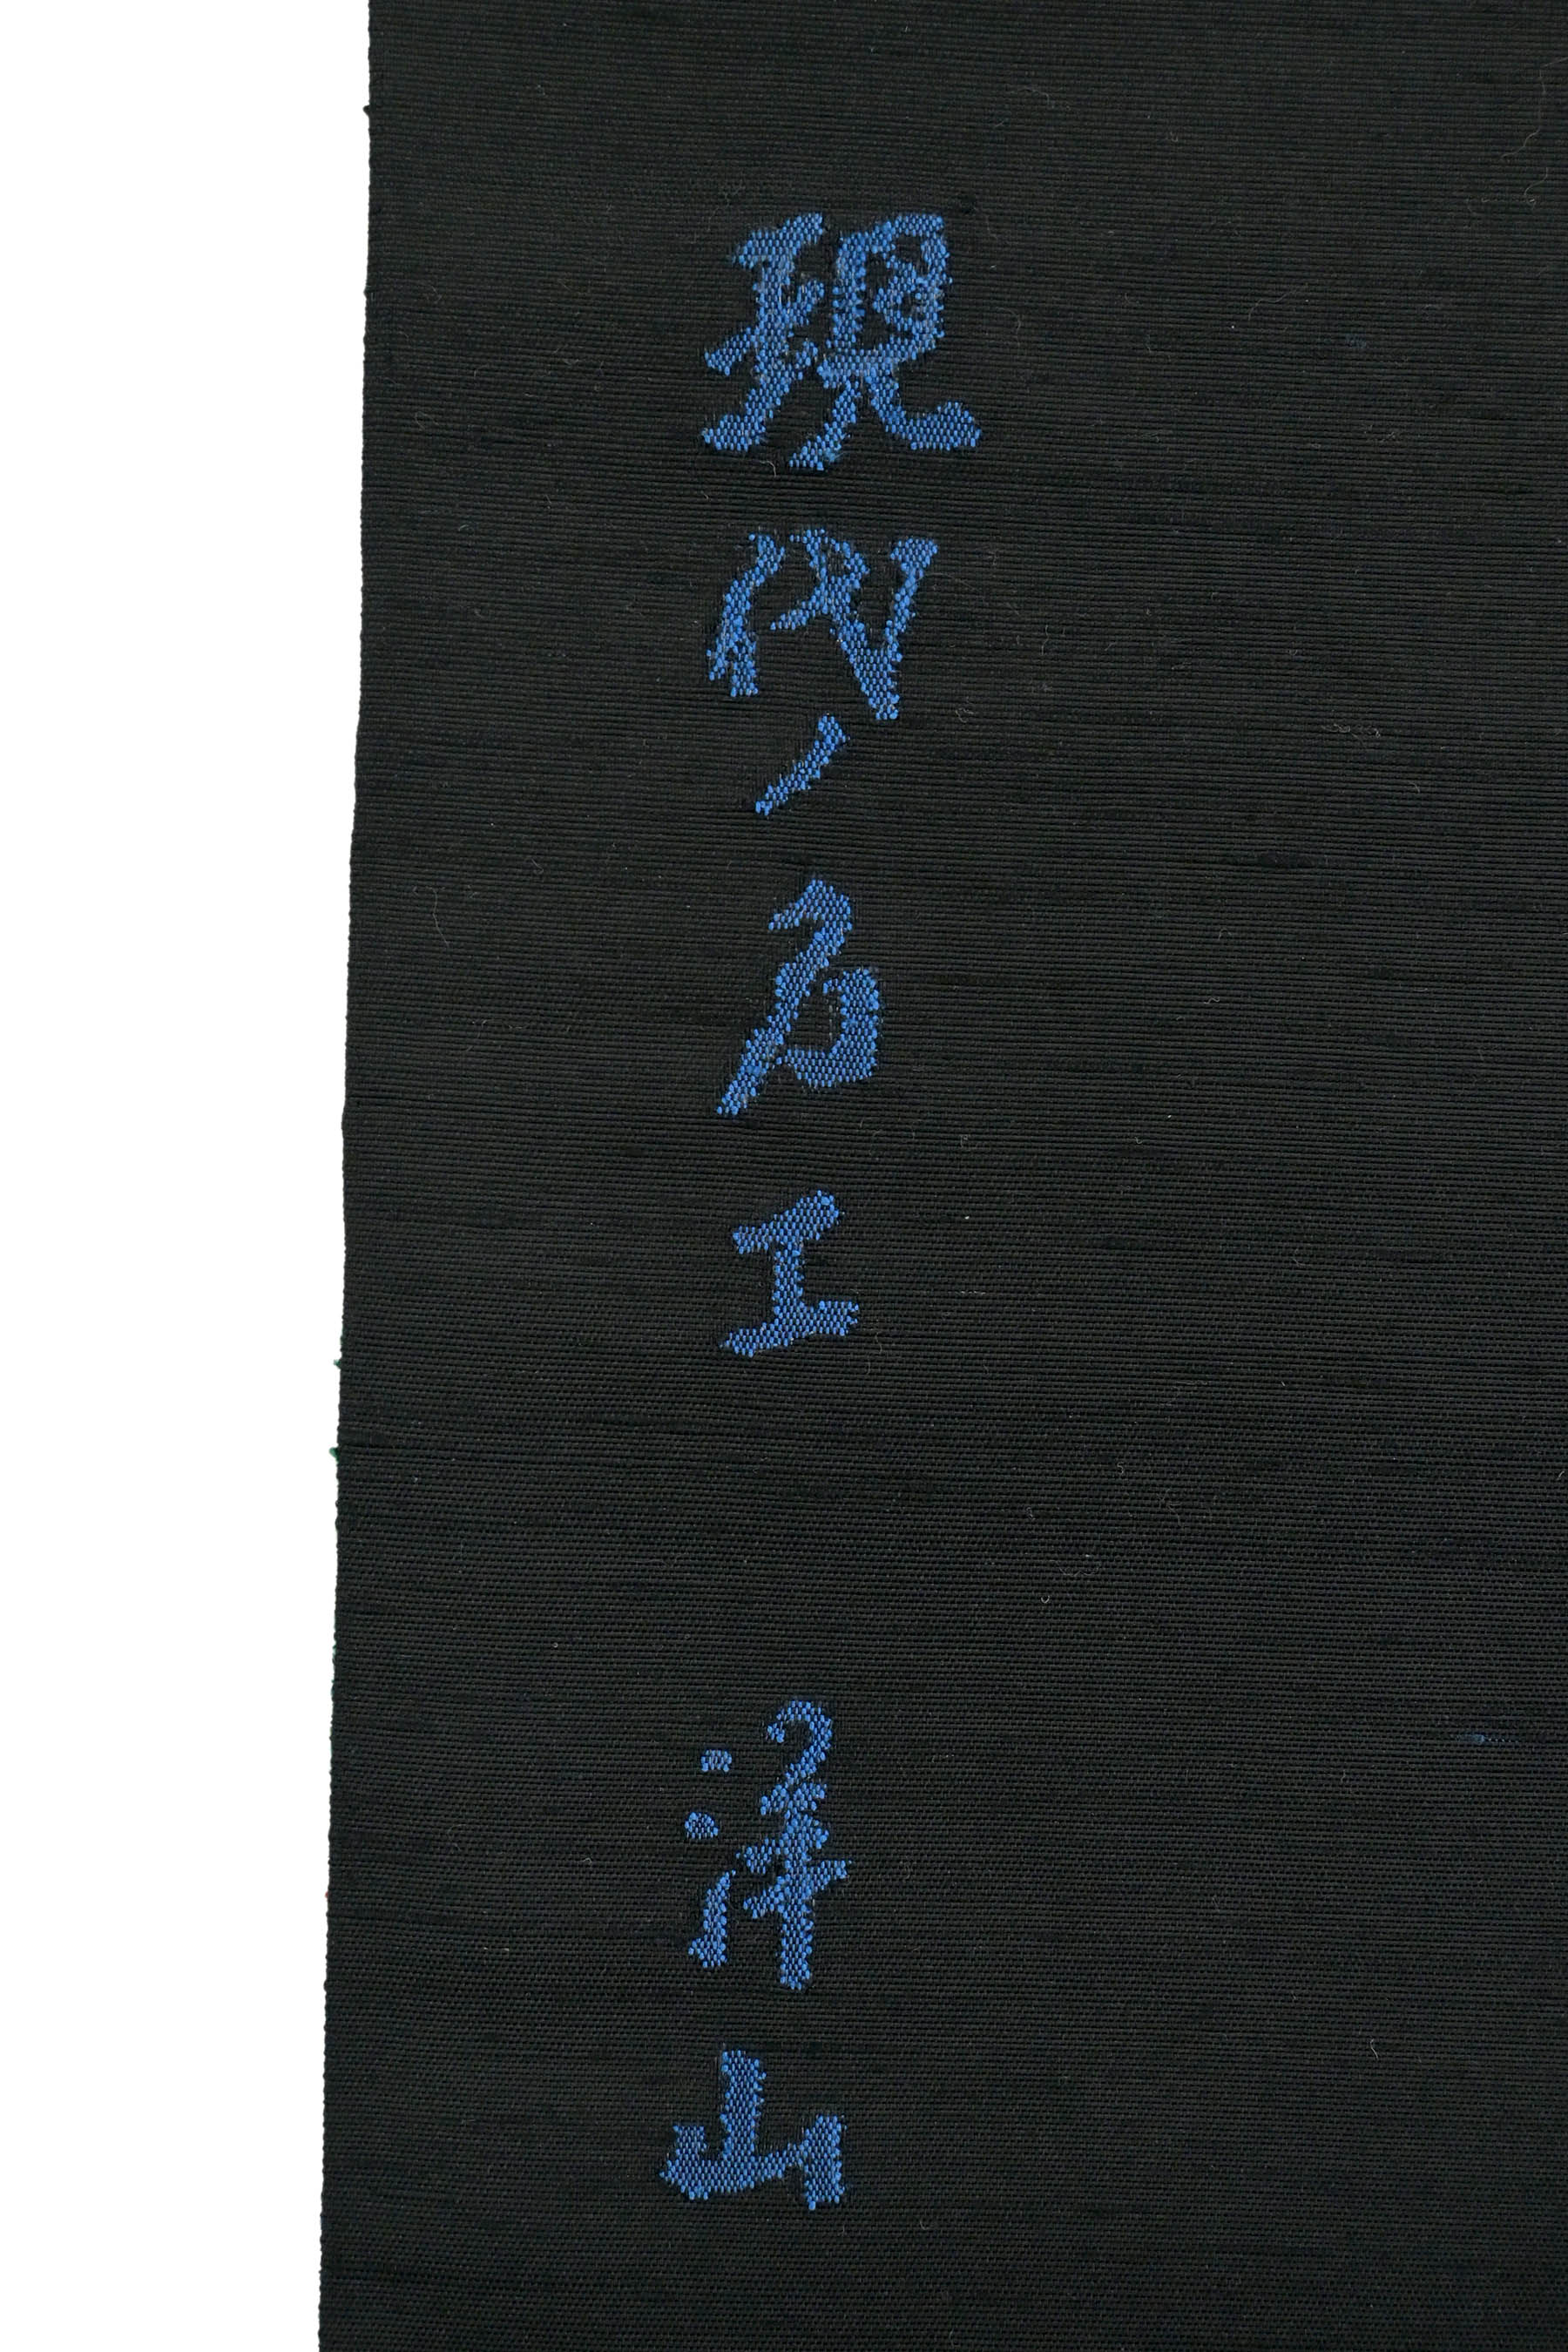 現代ノ名工 山